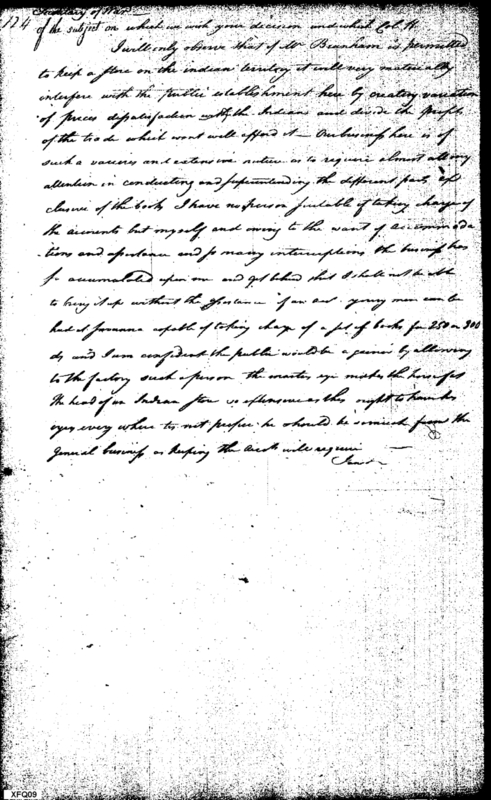 Secretary of War
174
of the subject on which we wish your decision and what Col. H.
I will only observe that if Mr Burnham is permitted
to keep a store on the indian territory it will very materially
interfere with the public establishment here by creating variation
of prices dissatisfaction with the Indians and divide the profits
of the trade which wont well afford it — Our business here is of
such a various and extensive nature as to require almost all my
attention in conducting and superintending the different parts
closure of the books I have no person suitable of taking charge of
the accounts but myself and owing to the want of accommoda
tions and assistance and so many interruptions the business has
so accumulated upon me and got behind that I shall not be able
to bring it up without the assistance of an a young man can be
had at Savanna capable of taking charge of a set of books for 250 or 300
ds and I am confident the public would be a gainer by allowing
to the factory such a person the masters eye makes the horse fat
The head of an Indian store so extensive as this ought to have his
eyes every where to not he should be from the
general business as keeping the accots will require —